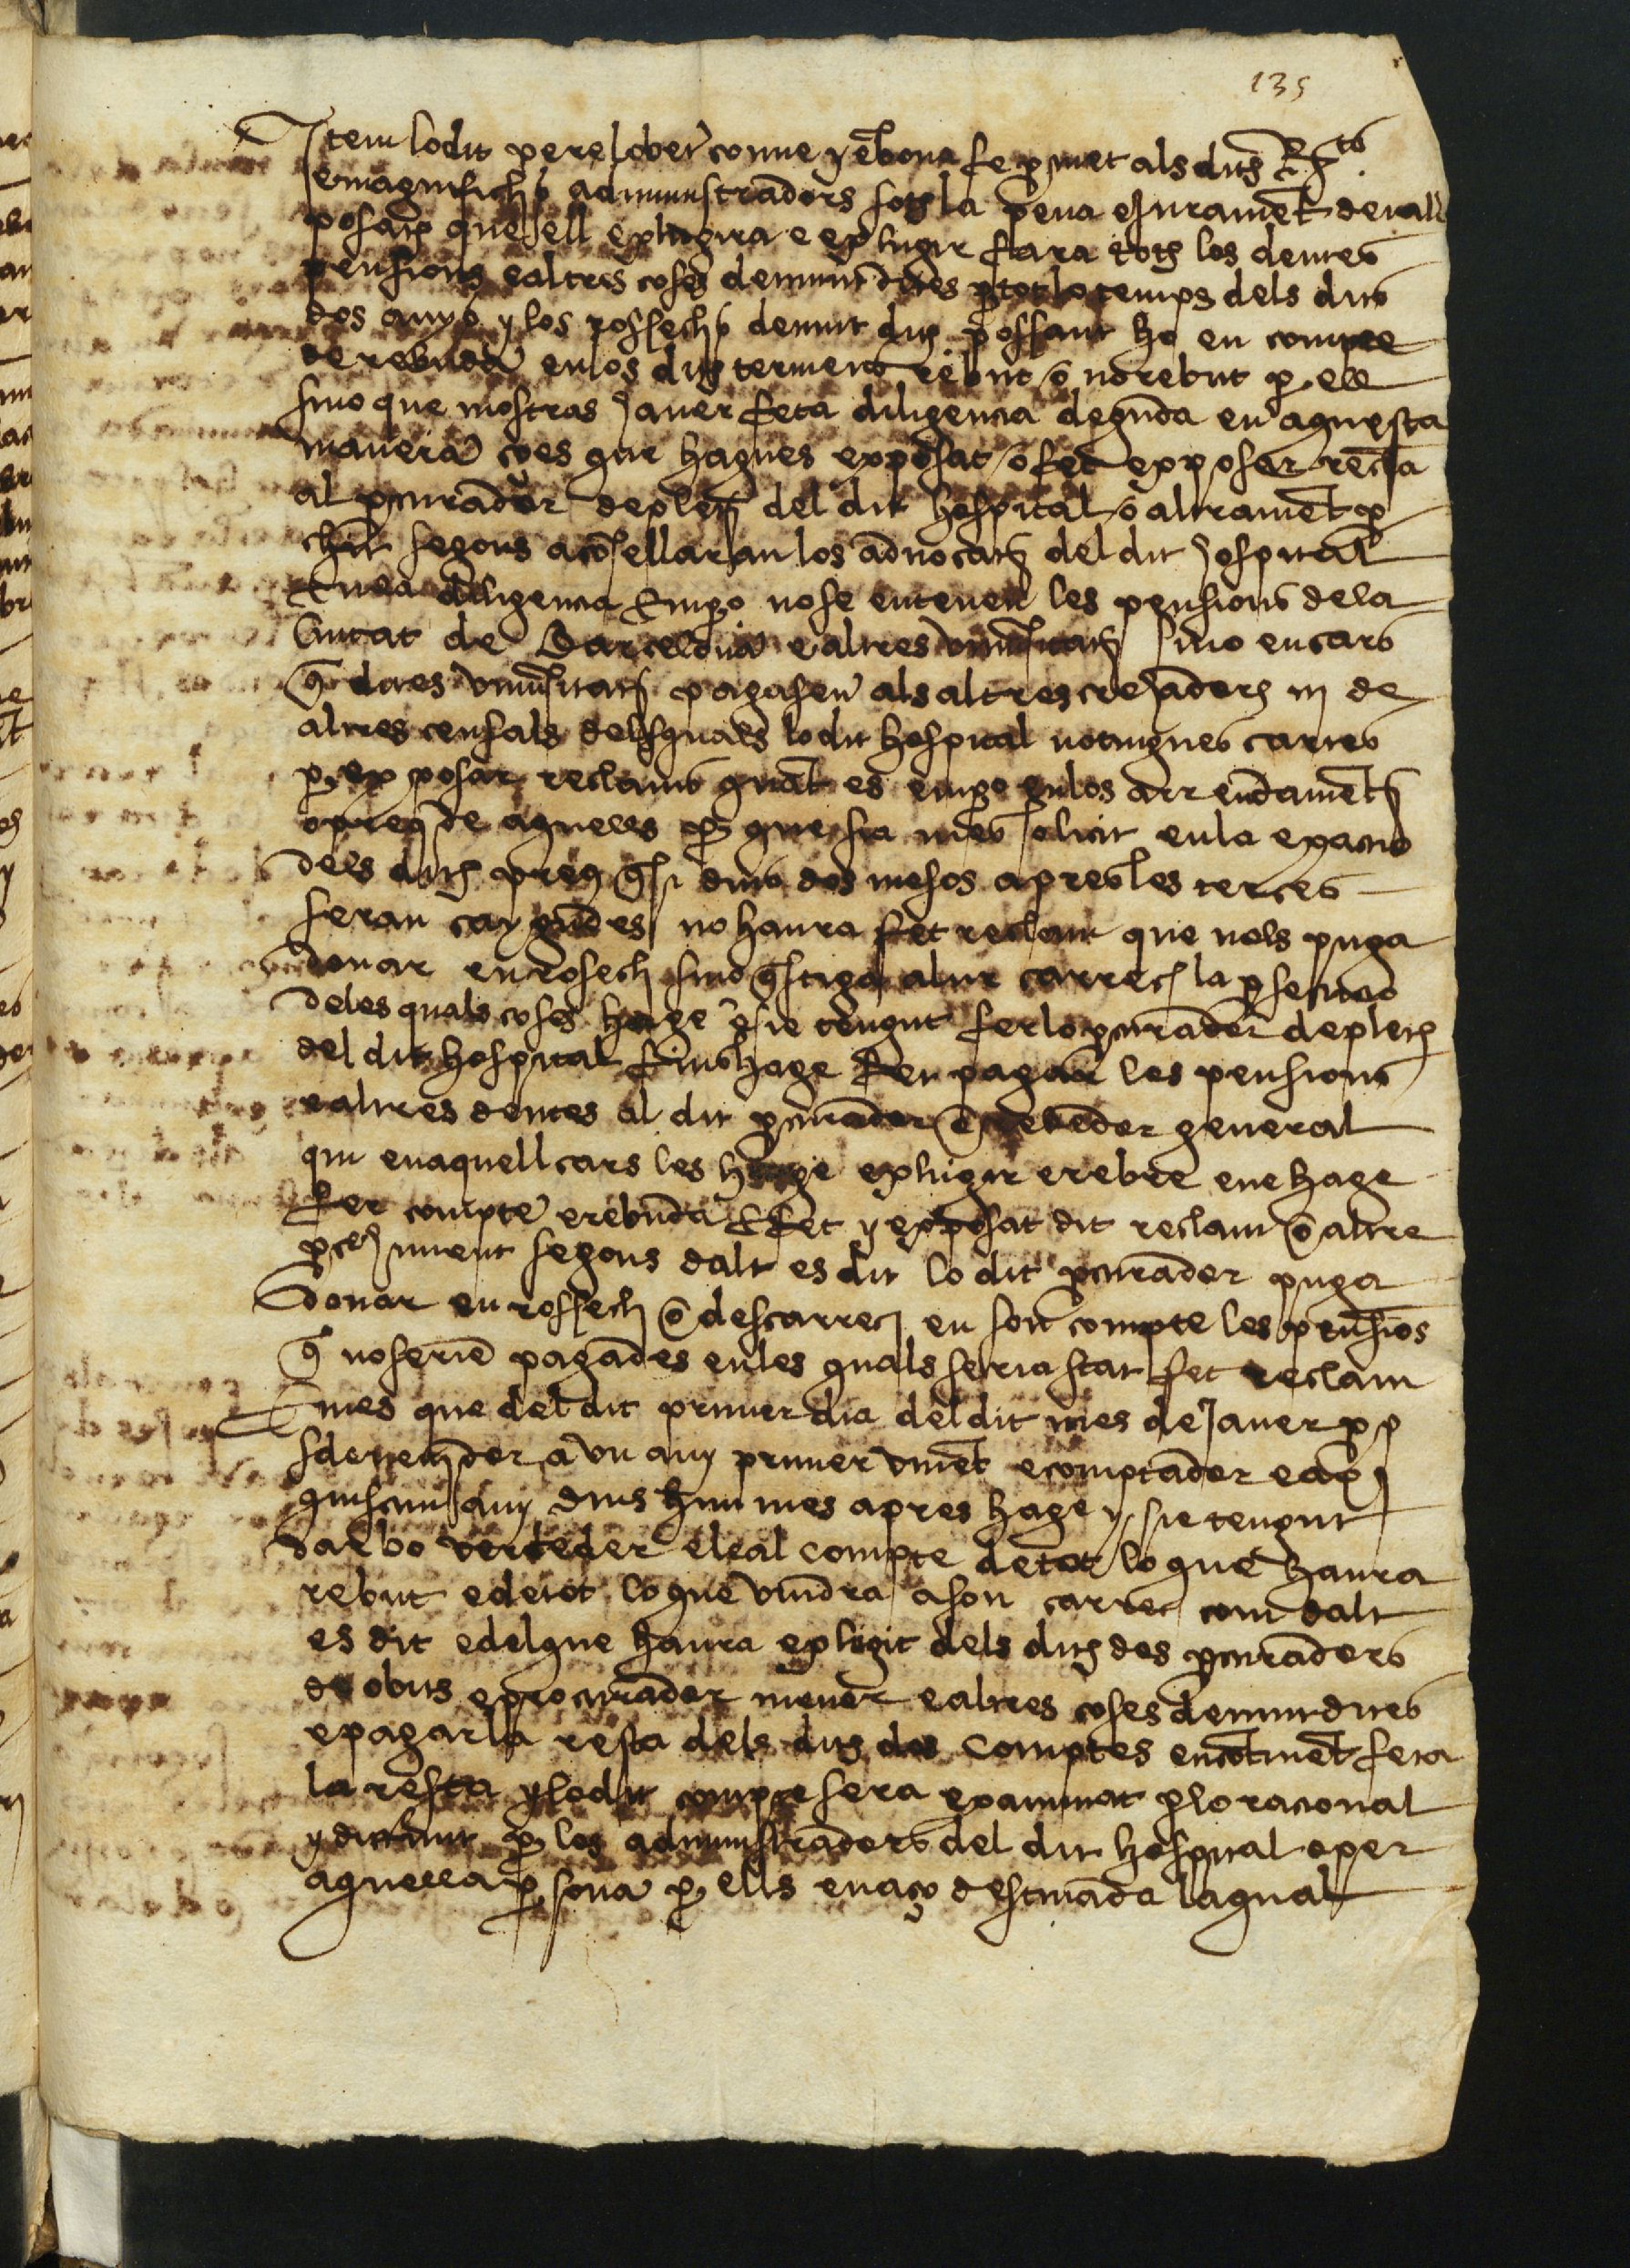 135
Item lo dit pere lober conve y en bona fe p̄met als dits R.ts
e magnifichs administradors sots la pena e jurament devall
posats que ell exhigira e exhigir fara tots los deutes
pensions e altres coses demunt dites p tot lo temps dels dits
dos anys y los rossechs demunt dits possant ho en compte
de rebuda en los dits terments rebut o no rebut p ell
sino que mostras haver feta diligencia deguda en aquesta
manera ço es que hagues exposat o fet exposar reclã
al p̄curador de plets del dit hospital o altrament p
segons acõsellarian los advocats del dit hospital
En la diligencia Emp̄o no se entenen les pensions de la
Ciutat de Barcelona e altres univ̄sitats sino en cars
q̄ dites univ̄sitats pagasen als altres crehadors ni de
altres censals dels quals lo dit hospital no tingues cartes
p exposar reclams quãt es emp̄o en los arrendaments
o preu de aquells p̄ que sia mes solicit en la exactio
dels dits preus q̄ si dins dos mesos apres les terces
seran caygudes no haura fet reclam que nols puga
donar en rosech sino q̄ stiga a lur carrech la p̄secucio
de les quals coses hage e sie tengut fer lo p̄curador de plets
del dit hospital fins hage fen pagar les pensions
e altres deutes al dit p̄curador o general
qui en aquell cars les hage exhigir e rebre e ne hage
fer compte e rebuda E fet y exposat dit reclam o altre
segons dalt es dit lo dit p̄curador puga
donar en rossech o descarrech en son compte les pensiõs
q̄ no serie pagades en les quals seria stat fet reclam
E mes que del dit primer dia del dit mes de Janer p̄p
sdevenidor a un any primer vinẽt e comptador e
quiscun any dins hun mes apres hage y sie tengut
dar bo verteder e leal compte de tot lo que haura
rebut e de tot lo que vindra a son carrech com dalt
es dit e del que haura exhigit dels dits dos p̄curadors
de obits e procurador menor e altres coses demunt dites
e pagar la resta dels dits dos comptes encõtinẽt feta
la resta y lo dit compte sera examinat p̄ lo racional
y difinit p̄ los administradors del dit hospital o per
aquella p̄sona p̄ ells en aço destinada la qual